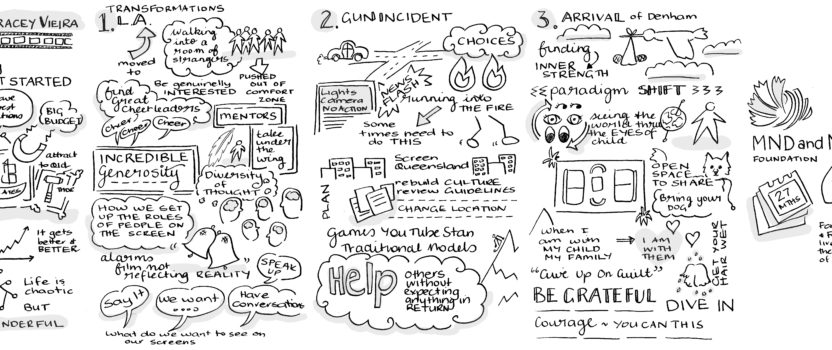 TRACEY VIEIRA
STARTED
BIG
BUDGET
attract
to Qld
It gets
better &
BETTER
Life is
chaotic
BUT
WONDERFUL
TRANSFORMATIONS
1. L.A.
moved
to
walking
into a
room of
strangers
PUSHED
OUT OF
COMFORT
ZONE
Be genuinely
INTERESTED
find
Great
Cheerleaders
Cheer
Cheer
Cheer
MENTORS
take
under
the
wing
INCREDIBLE
Generosity
Diversity
of
THOUGHT
HOW WE SET
UP THE ROLES
OF PEOPLE ON
THE SCREEN
alarms
film not
reflecting REALITY
SPEAK
UP
Say It
We want
....
Have
Conversations
What do we want to see on
our screens
2. GUN INCIDENT
CHOICES
NEWS
FLASH
Lights
Camera
NO ACTION
running into
THE FIRE
Some
times need to
do THIS
PLAN
Screen
Queensland
rebuild CULTURE
review GUIDELINES
CHANGE LOCATION
Games YouTube Stan
Traditional Models
Help
others
without
expecting
anything in
RETURN
3. ARRIVAL of Denham
finding
INNER
STRENGTH
paradigm SHIFT
seeing the
world thru
the EYES of
child
OPEN
SPACE
TO SHARE
Bring your
DOG
When I
am with
MY CHILD
MY FAMILY
I AM
WITH
THEM
GET YOUR
HAIR WET
"Give Up On Guilt"
BE GRATEFUL
DIVE IN
Courage ~ YOU CAN THIS
MND and
FOUNDATION
27